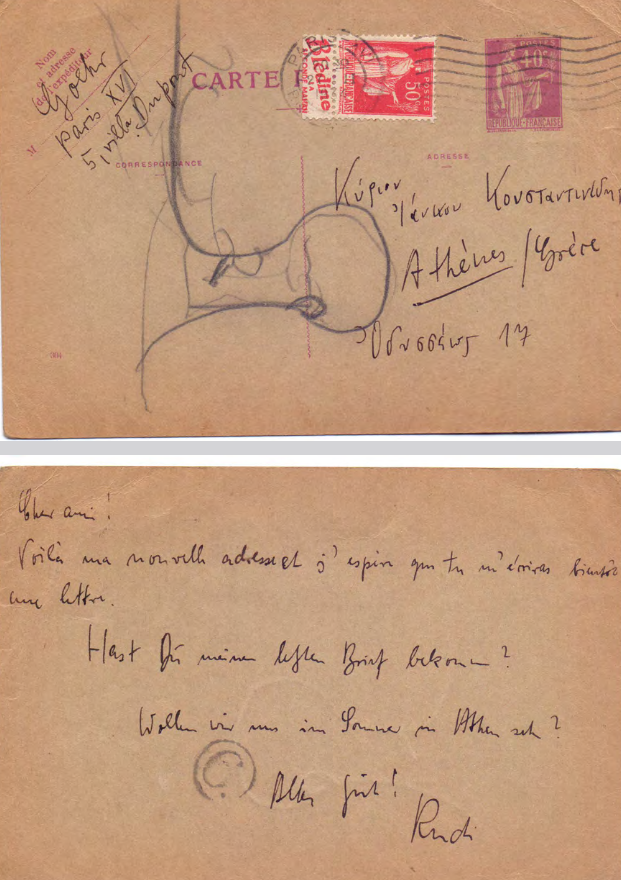 Nom
et adresse
de l'expéditeur
Goehr
Paris XVI
5, villa Dupont
CARTE
Blédine
50c
POSTES
FRANÇAISE
POSTES
40c
RÉPUBLIQUE FRANÇAISE
M
CORRESPONDANCE
ADRESSE
Κύριον
Ἰάνικον Κουσταντινίδη
Athènes / Grèce
Ὀδυσσέως 17
Cher ami!
Voilà ma nouvelle adresse et j'espère que tu m'écriras bientôt
une lettre.
Hast Du meinen letzten Brief bekommen?
Wollen wir uns im Sommer in Athen seh?
Alles gute!
Rudi